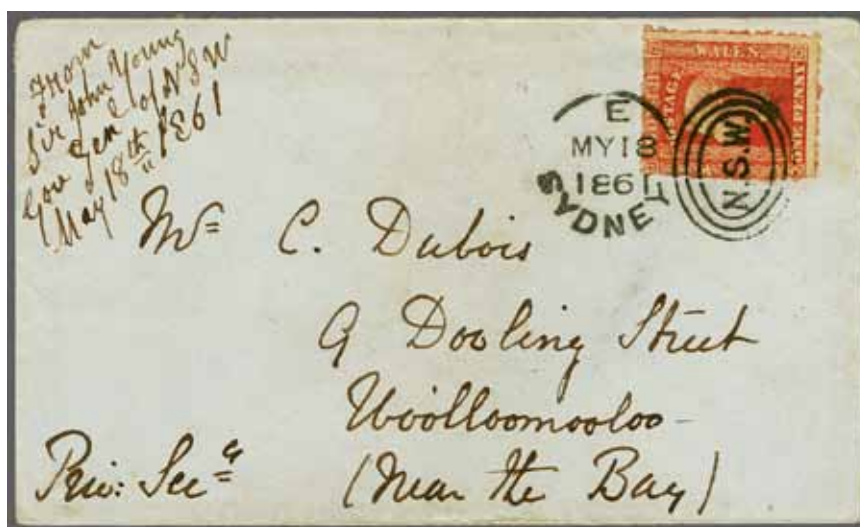 From
Sir John Young
Gov Genl of N S W
May 18th 1861
WALES.
POSTAGE
ONE PENNY
E
MY 18
1861
SYDNEY
N.S.W.
Mr C. Dubois
9 Dooling Street
Woolloomooloo -
(Near the Bay)
Priv: Secy